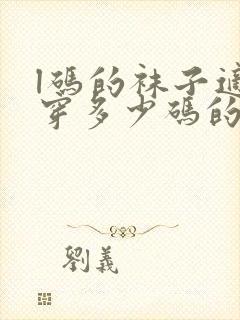 l碼的袜子適
穿多少碼的
劉義